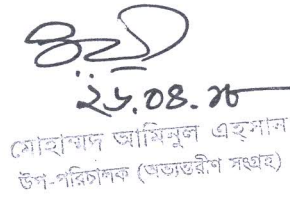 ২৬.০৪.২৮
মোহাম্মদ আমিনুল এহসান
উপ-পরিচালক (অভ্যন্তরীণ সংগ্রহ)